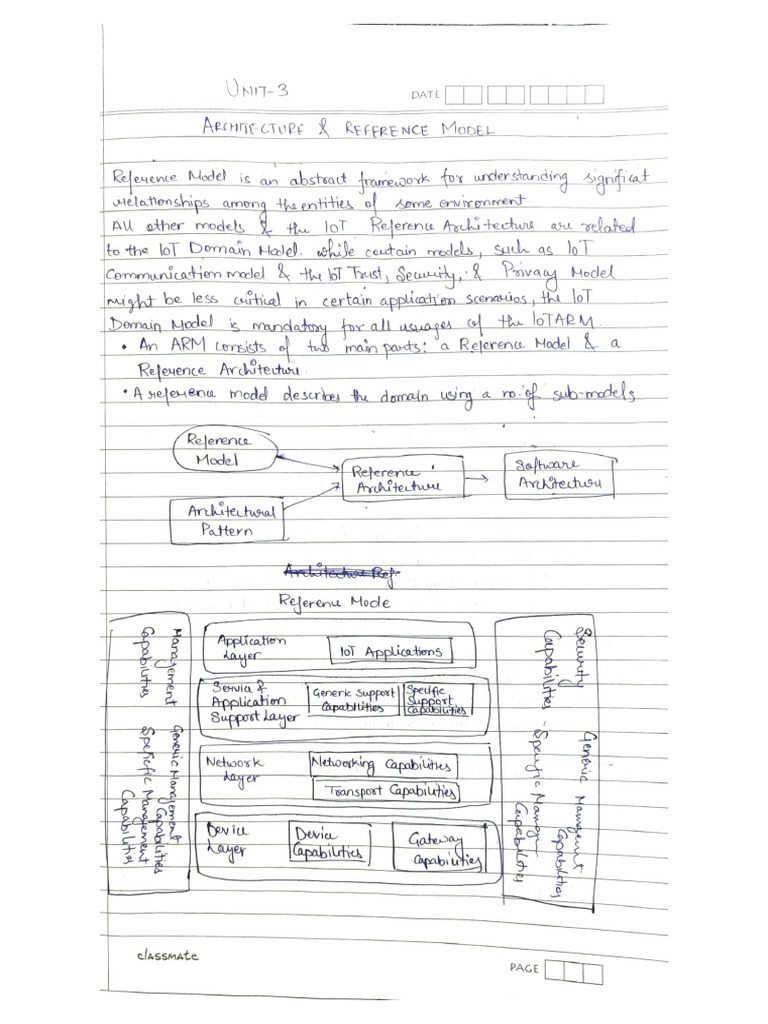 UNIT-3
DATE
ARCHITECTURE & REFERENCE MODEL
Reference Model is an abstract framework for understanding significat
relationships among the entities of some environment
All other models & the IoT Reference Architecture are related
to the IoT Domain Model. while certain models, such as IoT
Communication model & the IoT Trust, Security, & Privacy Model
might be less critical in certain application scenarios, the IoT
Domain Model is mandatory for all usages of the IoTARM.
• An ARM consists of two main parts: a Reference Model & a
Reference Architecture.
• A reference model describes the domain using a no. of sub-models
Reference
Model
Reference
Architecture
Software
Architecture
Architectural
Pattern
Architecture Ref
Reference Mode
Management
Capabilities
Generic Management
Capabilities
Speficfic Management
Capabilities
Application
Layer
IoT Applications
Service &
Application
Support Layer
Generic Support
Capabilities
Specific
Support
Capabilities
Network
Layer
Networking Capabilities
Transport Capabilities
Device
Layer
Device
Capabilities
Gateway
Capabilities
Security
Capabilities -
Generic Managment
Capabilities
Specific Manag-
Capabilities
classmate
PAGE